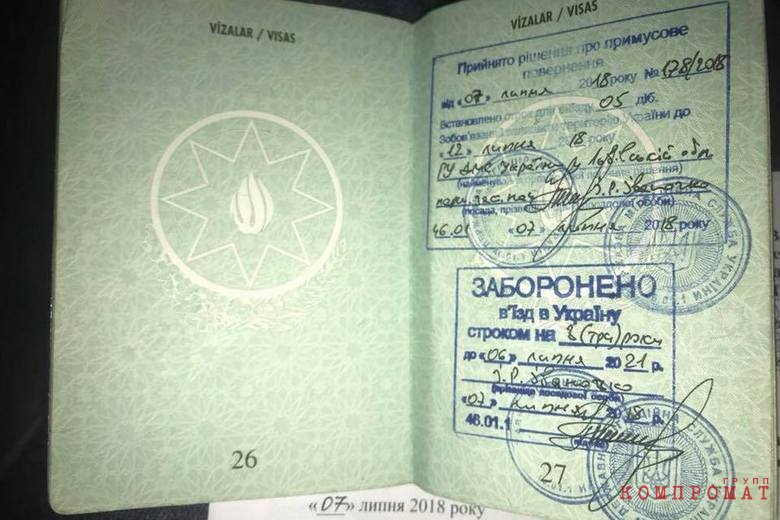 VİZALAR / VISAS
26
VİZALAR / VISAS
Прийнято рішення про примусове
повернення
від «07» липня 2018 року № 178/2018
Встановлено строк для виїзду 05 діб.
Зобов'язаний залишити територію України до
«12» липня 2018 року
ГУ ДМС України у Львівській обл.
(посада, особи)
46.01 «07» липня 2018 року
ЗАБОРОНЕНО
в'їзд в Україну
строком на 3 (три) роки
до «06» липня 2021 р.
(прізвище посадової особи)
«07» липня 2018 р.
46.01.1
27
СЛУЖБА УКРАЇНИ
СЛУЖБА
«07» липня 2018 року
ГРУПП
КОМПРОМАТ